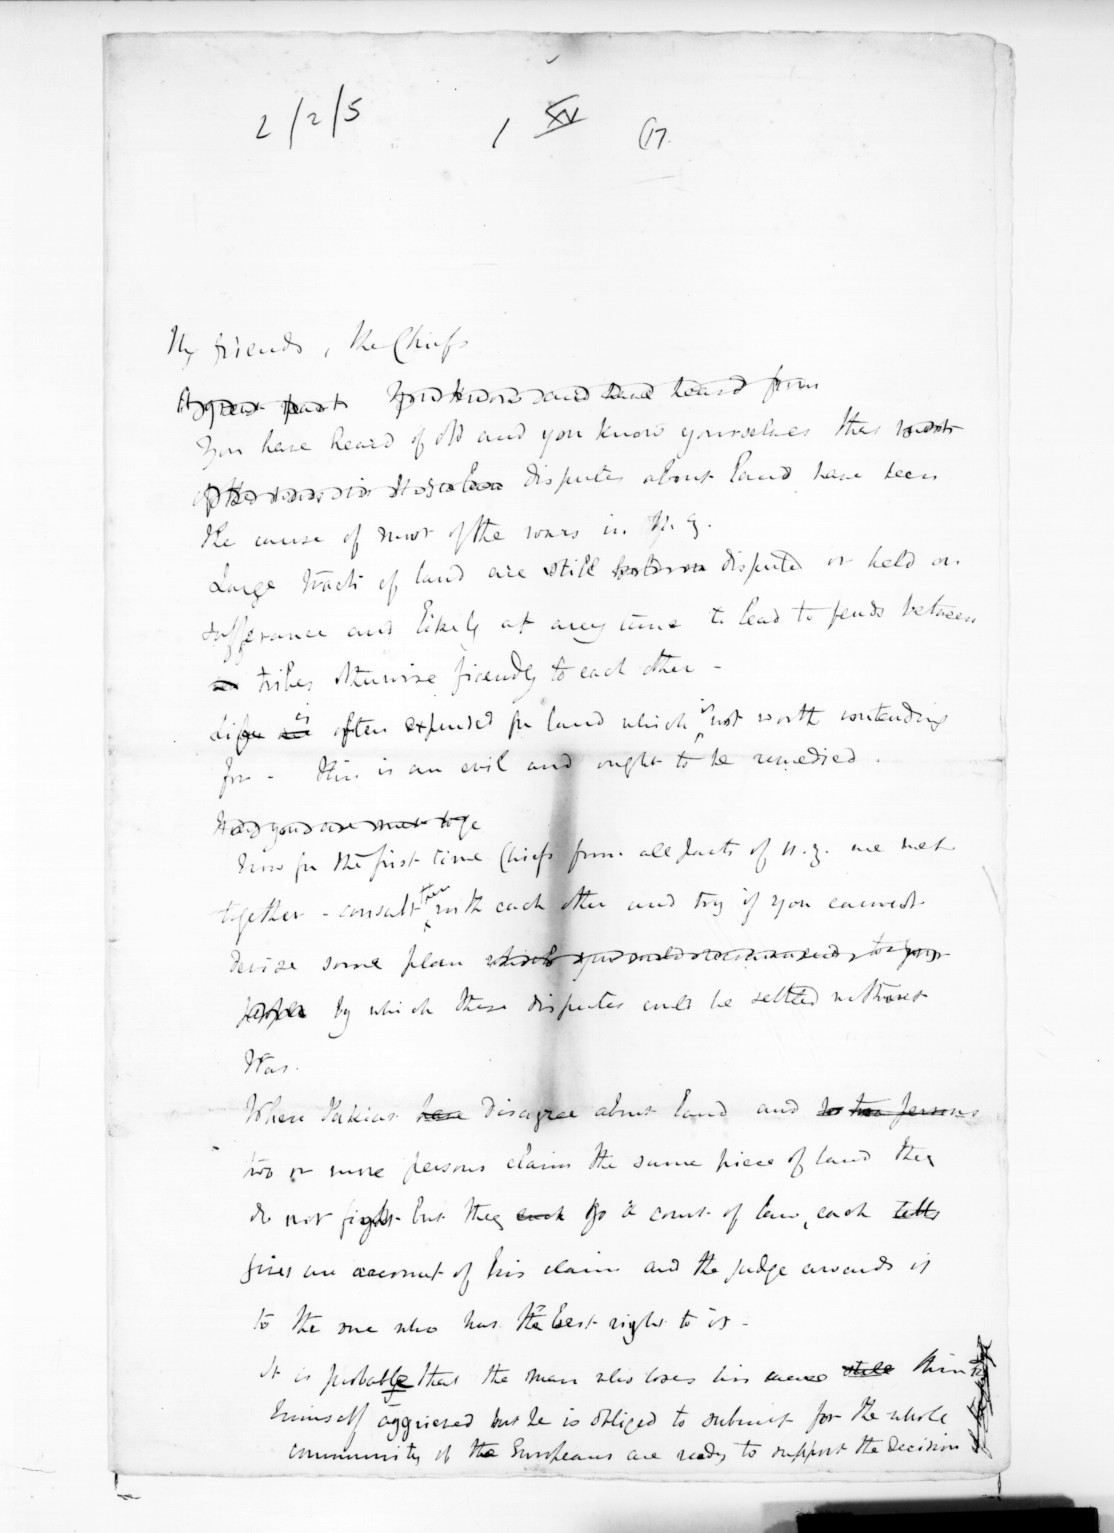 2/2/5 1 XV 67.
My friends, the Chiefs
A great part You know and have heard from
You have heard of old and you know yourselves that most
of the wars in disputes about land have been
the cause of most of the wars in N.Z.
Large tracts of land are still disputed or held on
sufferance and likely at any time to lead to feuds between
tribes otherwise friendly to each other -
Life is often expended for land which is not worth contending
for - This is an evil and ought to be remedied.
Here you are met toge
Now for the first time Chiefs from all parts of N.Z. are met
together - consult then with each other and try if you cannot
devise some plan which you could recommend to your
people by which these disputes could be settled without
War.
When Pakias have disagree about land and so two persons
two or more persons claim the same piece of land they
do not fight but they each go to a court of law, each tells
gives an account of his claim and the judge awards it
to the one who has the best right to it -
It is probable that the man who loses his while thinks
himself aggrieved but he is obliged to submit for the whole
community of the Europeans are ready to support the decision